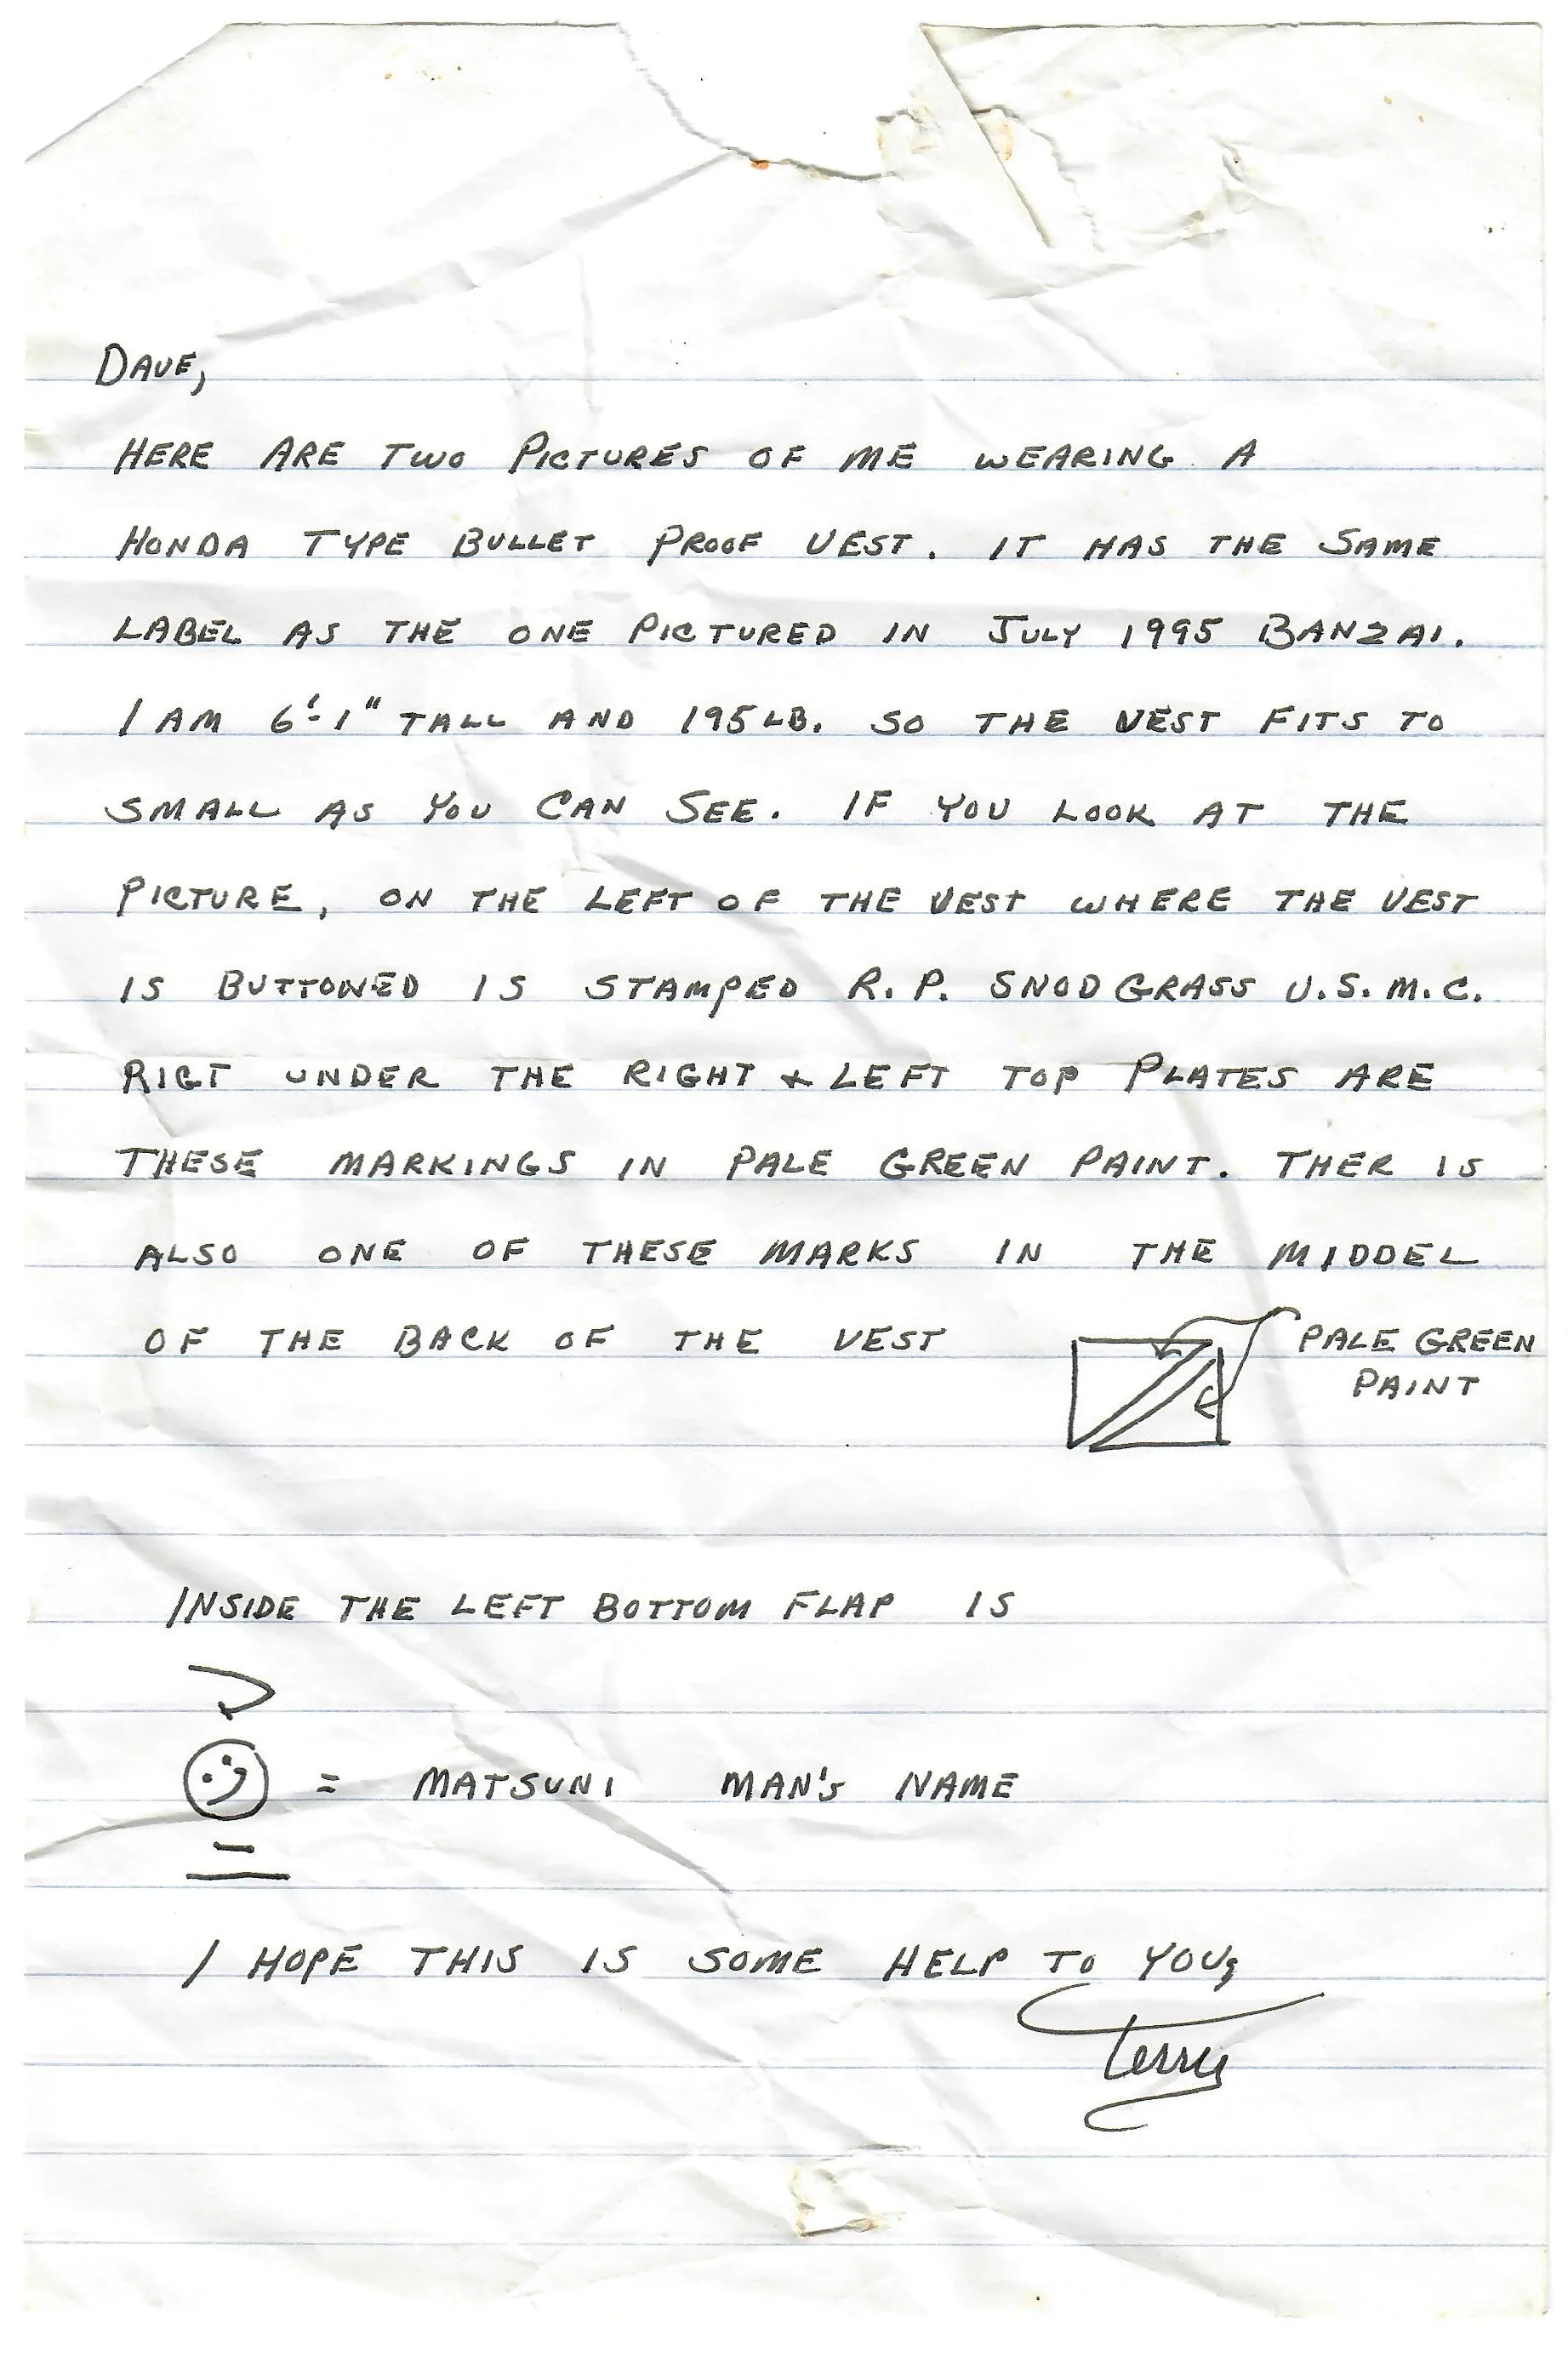 DAVE,
HERE ARE TWO PICTURES OF ME WEARING A
HONDA TYPE BULLET PROOF VEST. IT HAS THE SAME
LABEL AS THE ONE PICTURED IN JULY 1995 BANZAI.
I AM 6'-1" TALL AND 195LB. SO THE VEST FITS TO
SMALL AS YOU CAN SEE. IF YOU LOOK AT THE
PICTURE, ON THE LEFT OF THE VEST WHERE THE VEST
IS BUTTONED IS STAMPED R.P. SNODGRASS U.S.M.C.
RIGT UNDER THE RIGHT & LEFT TOP PLATES ARE
THESE MARKINGS IN PALE GREEN PAINT. THER IS
ALSO ONE OF THESE MARKS IN THE MIDDEL
OF THE BACK OF THE VEST
PALE GREEN
PAINT
INSIDE THE LEFT BOTTOM FLAP IS
= MATSUNI MAN'S NAME
I HOPE THIS IS SOME HELP TO YOU,
Terry